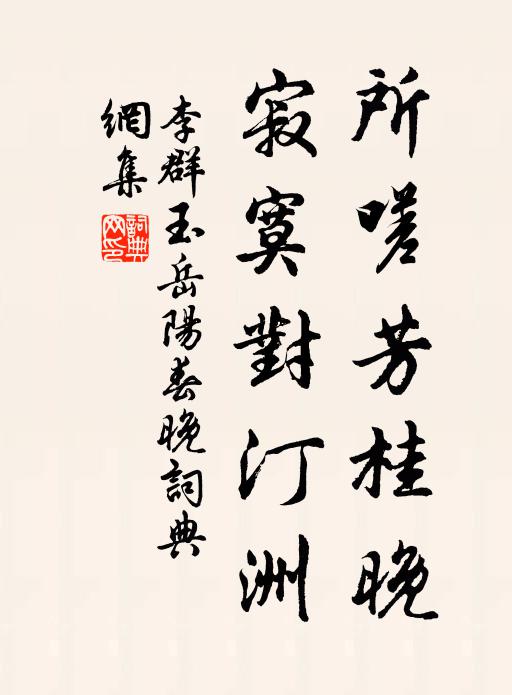 所嗟芳桂晚
寂寞對汀洲
李群玉岳陽春晚詞典
網集
詞典
网印